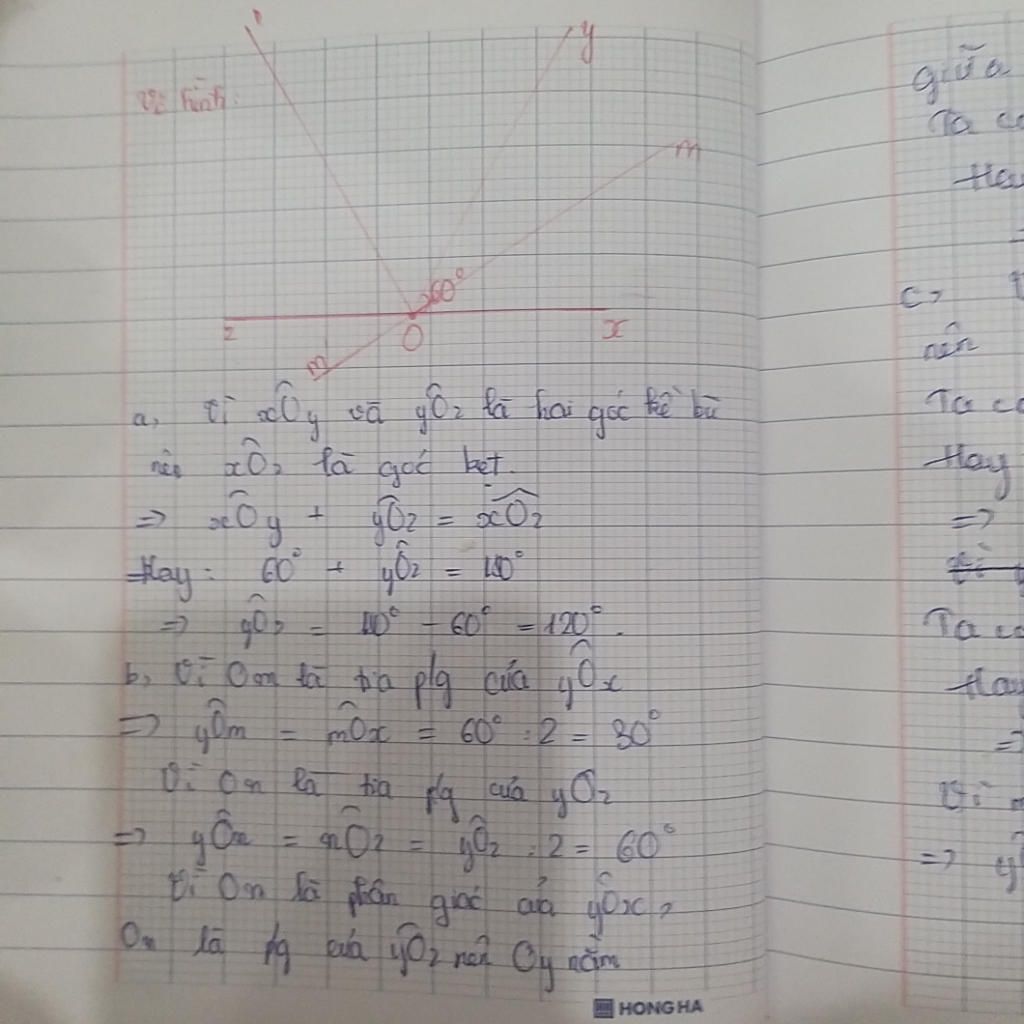 Vẽ hình:
y
m
60°
z
O
x
m
a, Vì xÔy và yÔz là hai góc kề bù
nên xÔz là góc bẹt.
=> xÔy + yÔz = xÔz
Hay: 60° + yÔz = 180°
=> yÔz = 180° - 60° = 120°.
b, Vì Om là tia p/g của yÔx
=> yÔm = mÔx = 60° : 2 = 30°
Vì On là tia p/g của yÔz
=> yÔn = nÔz = yÔz : 2 = 60°
Vì Om là phân giác của yÔx,
On là p/g của yÔz nên Oy nằm
HONG HA
giữa
Ta có
Hay
c,
nên
Ta có
Hay
=>
Ta có
Hay
=
Vì
=> y